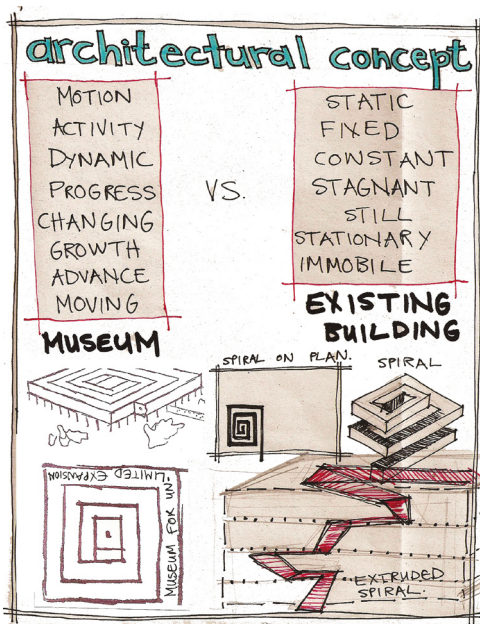 architectural concept
MOTION
ACTIVITY
DYNAMIC
PROGRESS
CHANGING
GROWTH
ADVANCE
MOVING
MUSEUM
VS.
STATIC
FIXED
CONSTANT
STAGNANT
STILL
STATIONARY
IMMOBILE
EXISTING
BUILDING
SPIRAL ON PLAN.
SPIRAL
MUSEUM FOR UN-
LIMITED EXPANSION
EXTRUDED
SPIRAL.